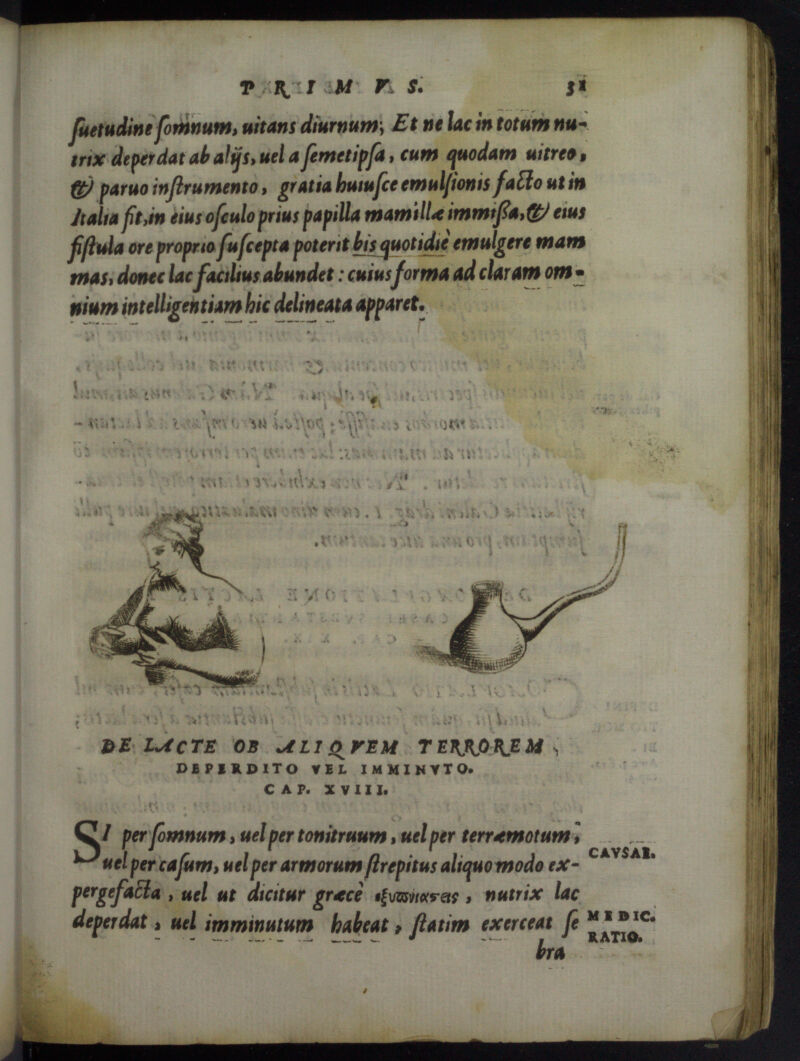 PRIMVS. 31
ſuetudine ſomnum, uitans diurnum; Et ne lac in totum nu-
trix deperdat ab alijs, uel a ſemetipſa, cum quodam uitreo,
& paruo inſtrumento, gratia huiuſce emulſionis facto ut in
Italia fit, in eius oſculo prius papilla mamillæ immißa, & eius
fiſtula ore proprio ſuſcepta poterit bis quotidiè emulgere mam
mas, donec lac facilius abundet: cuius forma ad claram om-
nium intelligentiam hic delineata apparet.
DE LACTE OB ALIQVEM TERROREM,
DEPERDITO VEL IMMINVTO.
CAP. XVIII.
SI per ſomnum, uel per tonitruum, uel per terræmotum,
uel per caſum, uel per armorum ſtrepitus aliquo modo ex-
CAVSAE.
pergefacta, uel ut dicitur græcè , nutrix lac
deperdat, uel imminutum habeat, ſtatim exerceat ſe
MEDIC.
RATIO.
bra